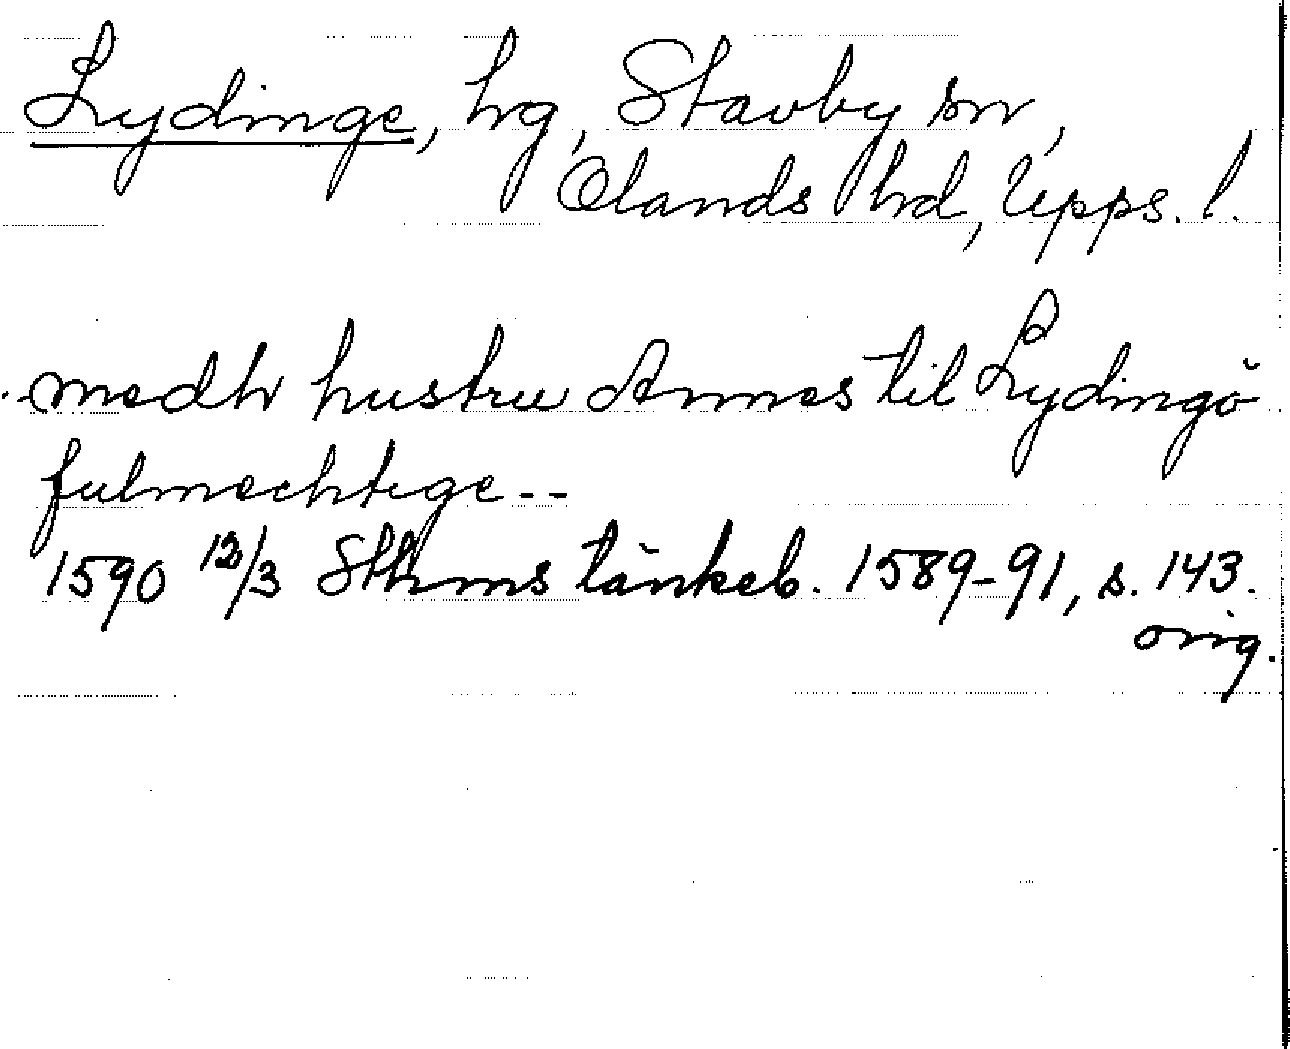 Lydinge, hg, Stavby sn,
Olands hd, Upps. l.
medh hustru Annes til Lydingö
fulmechtige--
1590 13/3 Sthms tänkeb. 1589-91, s. 143.
orig.